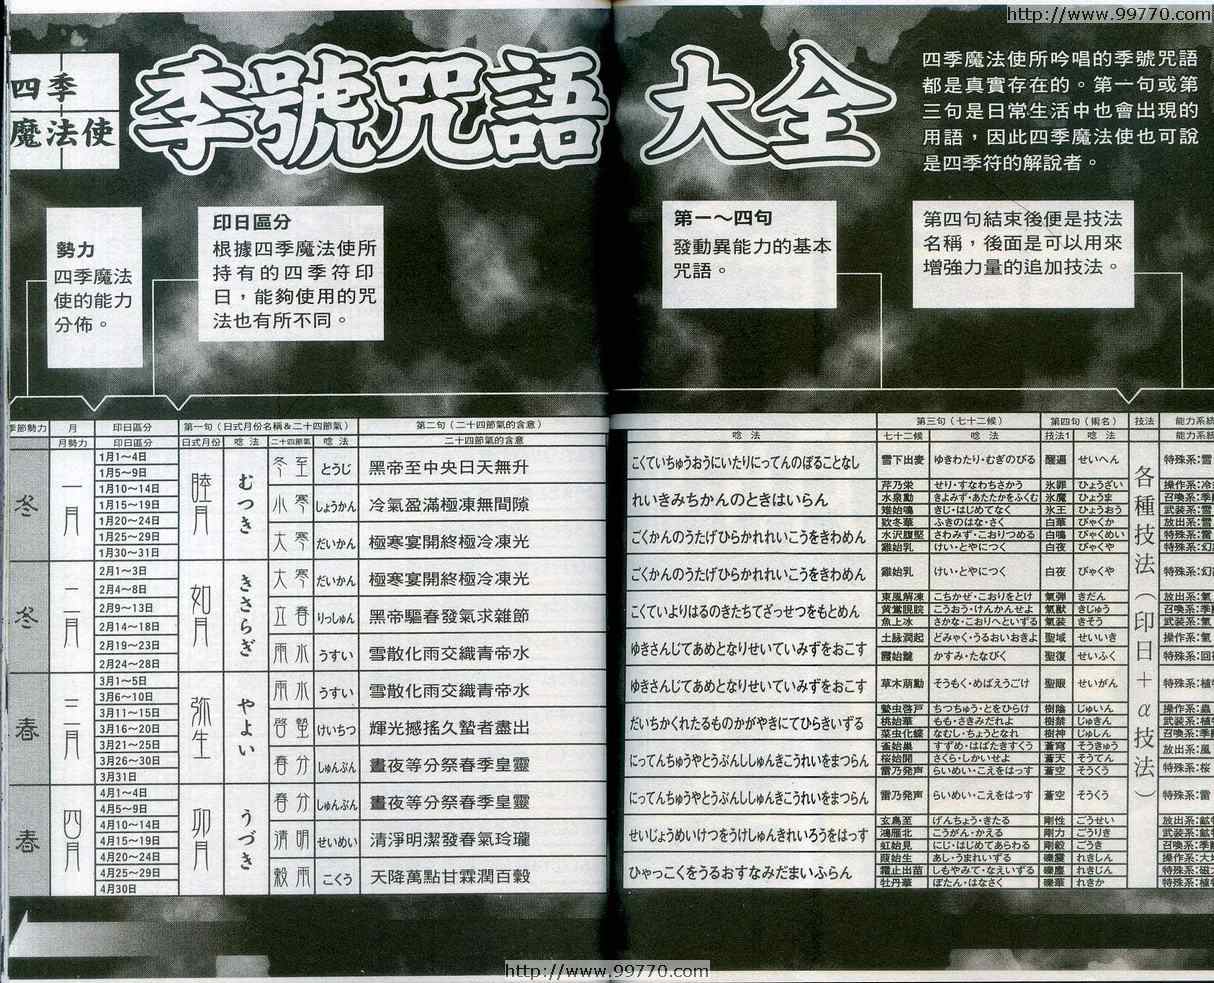 http://www.99770.com
四季
魔法使
季號咒語大全
四季魔法使所吟唱的季號咒語
都是真實存在的。第一句或第
三句是日常生活中也會出現的
用語，因此四季魔法使也可說
是四季符的解說者。
勢力
四季魔法
使的能力
分佈。
印日區分
根據四季魔法使所
持有的四季符印
日，能夠使用的咒
法也有所不同。
第一～四句
發動異能力的基本
咒語。
第四句結束後便是技法
名稱，後面是可以用來
增強力量的追加技法。
季節勢力 月 印日區分 第一句（日式月份名稱&二十四節氣） 第二句（二十四節氣的含意）
月勢力 印日區分 日式月份 唸法 二十四節氣 唸法 二十四節氣的含意
冬
一月
1月1～4日
1月5～9日
1月10～14日
1月15～19日
1月20～24日
1月25～29日
1月30～31日
睦月
むつき
冬至 とうじ 黑帝至中央日天無升
小寒 しょうかん 冷氣盈滿極凍無間隙
大寒 だいかん 極寒宴開終極冷凍光
冬
二月
2月1～3日
2月4～8日
2月9～13日
2月14～18日
2月19～23日
2月24～28日
如月
きさらぎ
大寒 だいかん 極寒宴開終極冷凍光
立春 りっしゅん 黑帝驅春發氣求雜節
雨水 うすい 雪散化雨交織青帝水
春
三月
3月1～5日
3月6～10日
3月11～15日
3月16～20日
3月21～25日
3月26～30日
3月31日
弥生
やよい
雨水 うすい 雪散化雨交織青帝水
啓蟄 けいちつ 輝光撼搖久蟄者盡出
春分 しゅんぶん 晝夜等分祭春季皇靈
春
四月
4月1～4日
4月5～9日
4月10～14日
4月15～19日
4月20～24日
4月25～29日
4月30日
卯月
うづき
春分 しゅんぶん 晝夜等分祭春季皇靈
清明 せいめい 清淨明潔發春氣玲瓏
穀雨 こくう 天降萬點甘霖潤百穀
第三句（七十二候） 第四句（術名） 技法 能力系統
唸法 七十二候 唸法 技法1 唸法 能力系
こくていちゅうおうにいたりにってんのぼることなし
れいきみちかんのときはいらん
ごくかんのうたげひらかれれいこうをきわめん
ごくかんのうたげひらかれれいこうをきわめん
こくていよりはるのきたちてざっせつをもとめん
ゆきさんじてあめとなりせいていみずをおこす
ゆきさんじてあめとなりせいていみずをおこす
だいちかくれたるものかがやきにてひらきいずる
にってんちゅうやとうぶんししゅんきこうれいをまつらん
にってんちゅうやとうぶんししゅんきこうれいをまつらん
せいじょうめいけつをうけしゅんきれいろうをはっす
ひゃっこくをうるおすなみだまいふらん
雪下出麦 ゆきわたり・むぎのびる 醒遍 せいへん 特殊系：雪
芹乃栄 せり・すなわちさかう 氷罪 ひょうざい
水泉動 きよみず・あたたかをふくむ 氷魔 ひょうま
雉始鳴 きじ・はじめてなく 氷王 ひょうおう 武装系：雪
款冬華 ふきのはな・さく 白華 びゃくか 放出系：雪
水沢腹堅 さわみず・こおりつめる 白鳴 びゃくめい 特殊系：雷
雞始乳 けい・とやにつく 白夜 びゃくや
雞始乳 けい・とやにつく 白夜 びゃくや
東風解凍 こちかぜ・こおりをとけ 氣弾 きだん 放出系：氣
黄鶯睍睆 こうおう・けんかんせよ 氣獣 きじゅう
魚上氷 さかな・こおりへといずる 氣装 きそう 武装系：氣
土脉潤起 どみゃく・うるおいおきよ 聖域 せいいき 操作系：氣
霞始靆 かすみ・たなびく 聖復 せいふく
草木萌動 そうもく・めばえうごけ 聖眼 せいがん
蟄虫啓戸 ちつちゅう・とをひらけ 樹陰 じゅいん 操作系：蟲
桃始華 もも・さきみだれよ 樹禁 じゅきん
菜虫化蝶 なむし・ちょうとなれ 樹神 じゅしん
雀始巣 すずめ・はばたきすくう 蒼穹 そうきゅう 放出系：風
桜始開 さくら・しかいせよ 蒼天 そうてん 特殊系：桜
雷乃発声 らいめい・こえをはっす 蒼空 そうくう
雷乃発声 らいめい・こえをはっす 蒼空 そうくう 特殊系：雷
玄鳥至 げんちょう・きたる 剛性 ごうせい
鴻雁北 こうがん・かえる 剛力 ごうりき
虹始見 にじ・はじめてあらわる 剛毅 ごうき
葭始生 あし・うまれいずる 礫震 れきしん
霜止出苗 しもやみて・なえいずる 礫塵 れきじん
牡丹華 ぼたん・はなさく 礫華 れきか
各種技法（印日＋α技法）
http://www.99770.com